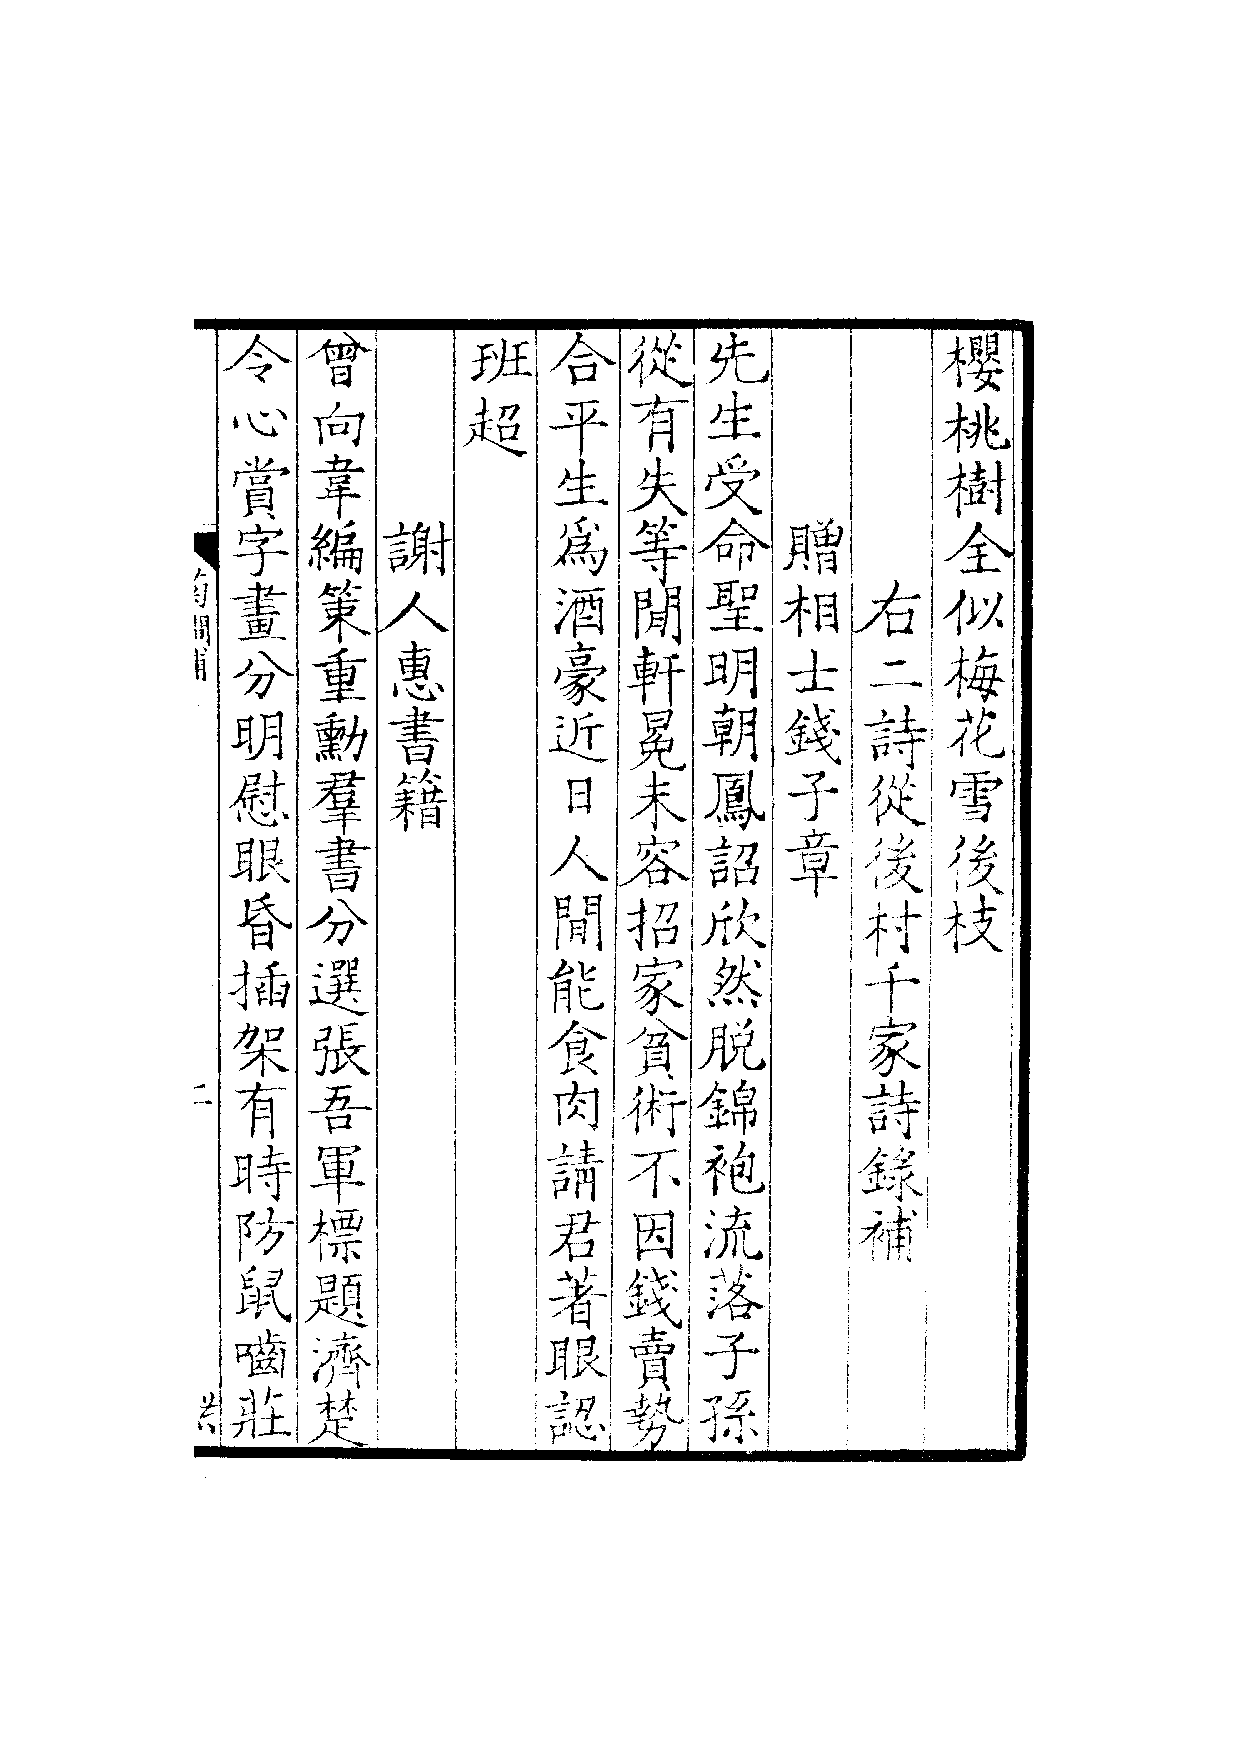 櫻桃樹全似梅花雪後枝
右二詩從後村千家詩錄補
贈相士錢子章
先生受命聖明朝鳳詔欣然脱錦袍流落子孫
從有失等閒軒冕未容招家貧術不因錢賣勢
合平生爲酒豪近日人閒能食肉請君著眼認
班超
謝人惠書籍
曾向韋編策重勳羣書分選張吾軍標題濟楚
令心賞字畫分明慰眼昏插架有時防鼠嚙莊
菊磵補